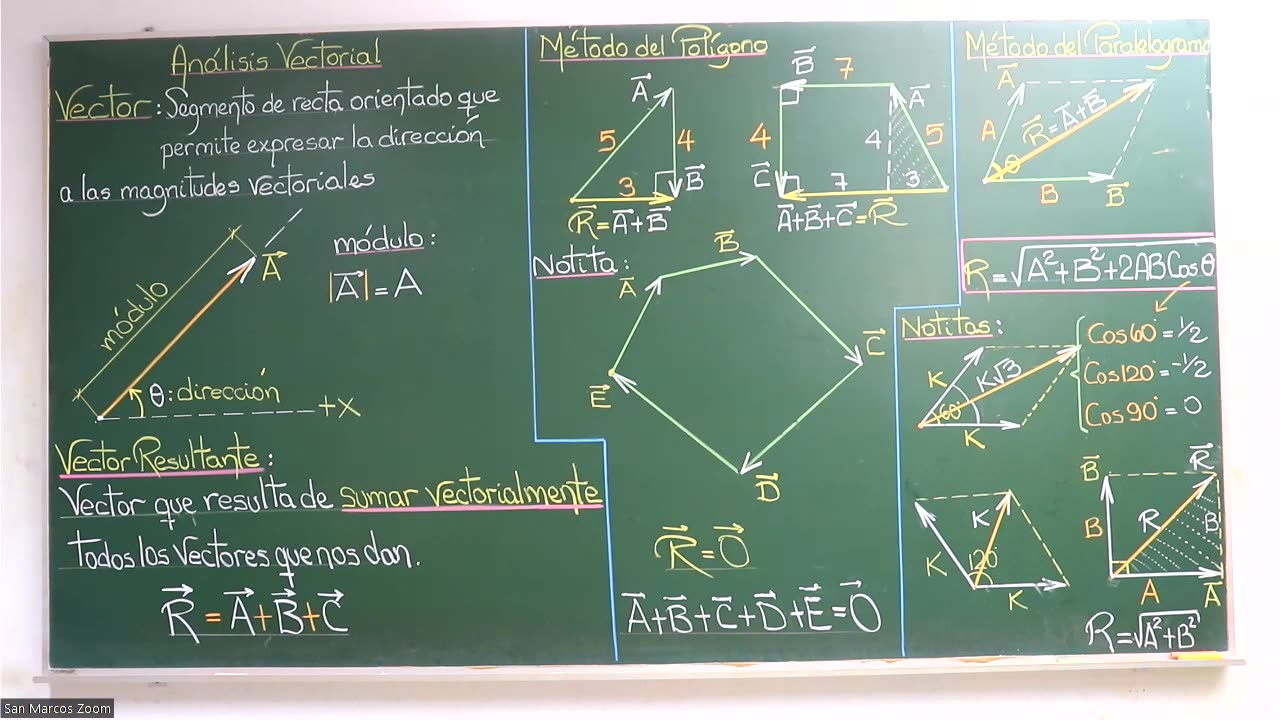 Análisis Vectorial
Vector: Segmento de recta orientado que
permite expresar la dirección
a las magnitudes vectoriales
módulo
A⃗
módulo:
|A⃗| = A
θ: dirección
+X
Vector Resultante:
Vector que resulta de sumar vectorialmente
todos los vectores que nos dan.
R⃗ = A⃗ + B⃗ + C⃗
Método del Polígono
A⃗
5
4
3
B⃗
R⃗ = A⃗ + B⃗
B⃗
7
A⃗
4
4
5
C⃗
7
3
A⃗ + B⃗ + C⃗ = R⃗
Notita:
A⃗
B⃗
C⃗
D⃗
E⃗
R⃗ = 0⃗
A⃗ + B⃗ + C⃗ + D⃗ + E⃗ = 0⃗
Método del Paralelogramo
A⃗
A
R⃗ = A⃗ + B⃗
θ
B
B⃗
R = √A² + B² + 2AB Cos θ
Notitas:
K
K√3
60°
K
Cos 60° = 1/2
Cos 120° = -1/2
Cos 90° = 0
K
K
120°
K
B⃗
R⃗
B
R
B
A
A⃗
R = √A² + B²
San Marcos Zoom